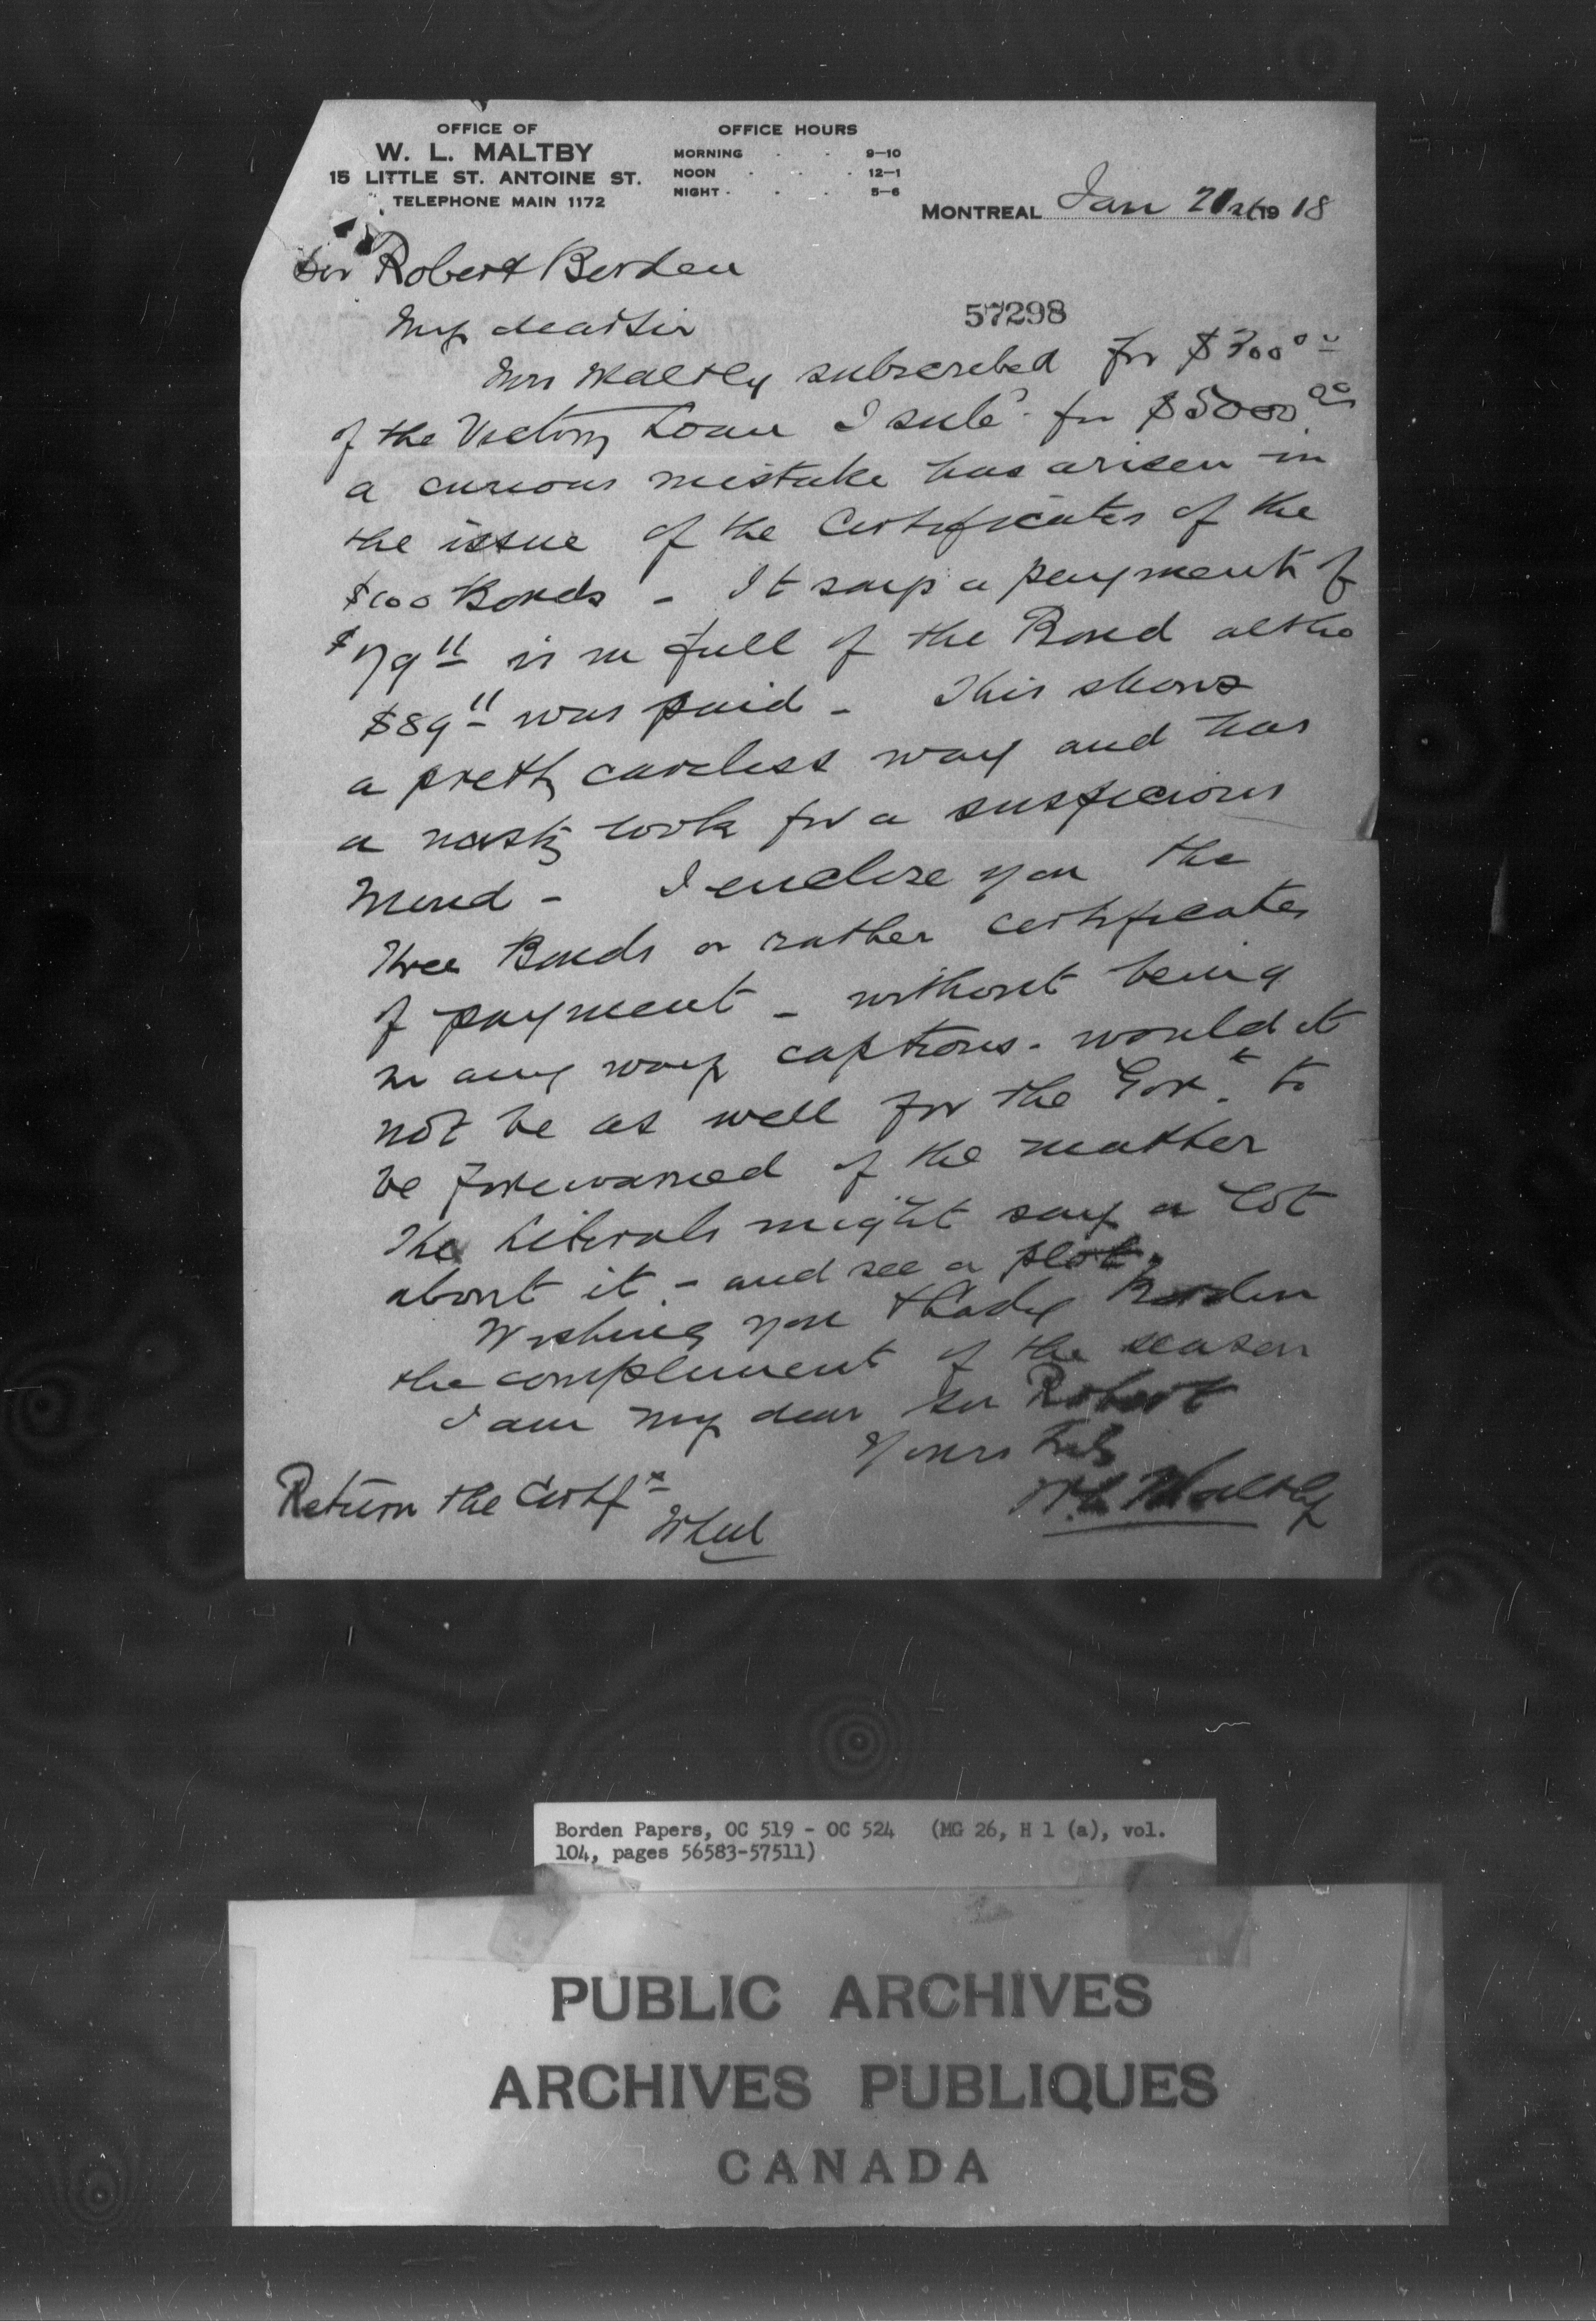 OFFICE OF
W. L. MALTBY
15 LITTLE ST. ANTOINE ST.
TELEPHONE MAIN 1172
OFFICE HOURS
MORNING - - 9-10
NOON - - - 12-1
NIGHT - - - 5-6
MONTREAL Jan 21st 1918
Sir Robert Borden
57298
My dear Sir
Mrs Maltby subscribed for $300 00
of the Victory Loan I sub for $5000 00
a curious mistake has arisen in
the issue of the Certificates of the
$100 Bonds - It says a payment of
$79 11 is in full of the Bond altho
$89 11 was paid - This shows
a pretty careless way and has
a nasty look for a suspicious
mind - I enclose you the
three Bonds or rather certificates
of payment - without being
in any way captious - would it
not be as well for the Govt. to
be forewarned of the matter
The Liberals might say a lot
about it - and see a plot.
Wishing you & Lady Borden
the compliment of the season
I am my dear Sir Robert
Yours truly
W. L. Maltby
Return the Certfs
Borden Papers, OC 519 - OC 524 (MG 26, H 1 (a), vol.
104, pages 56583-57511)
PUBLIC ARCHIVES
ARCHIVES PUBLIQUES
CANADA